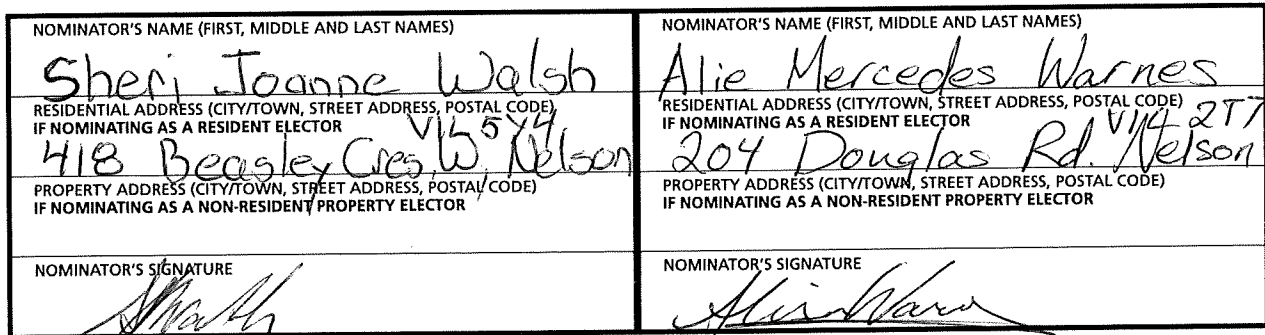 NOMINATOR'S NAME (FIRST, MIDDLE AND LAST NAMES)
Sheri Joanne Walsh
RESIDENTIAL ADDRESS (CITY/TOWN, STREET ADDRESS, POSTAL CODE)
IF NOMINATING AS A RESIDENT ELECTOR
V1L 5Y4
418 Beasley Cres, W, Nelson
PROPERTY ADDRESS (CITY/TOWN, STREET ADDRESS, POSTAL CODE)
IF NOMINATING AS A NON-RESIDENT PROPERTY ELECTOR
NOMINATOR'S SIGNATURE
NOMINATOR'S NAME (FIRST, MIDDLE AND LAST NAMES)
Alie Mercedes Warnes
RESIDENTIAL ADDRESS (CITY/TOWN, STREET ADDRESS, POSTAL CODE)
IF NOMINATING AS A RESIDENT ELECTOR
2T7
204 Douglas Rd. Nelson
PROPERTY ADDRESS (CITY/TOWN, STREET ADDRESS, POSTAL CODE)
IF NOMINATING AS A NON-RESIDENT PROPERTY ELECTOR
NOMINATOR'S SIGNATURE